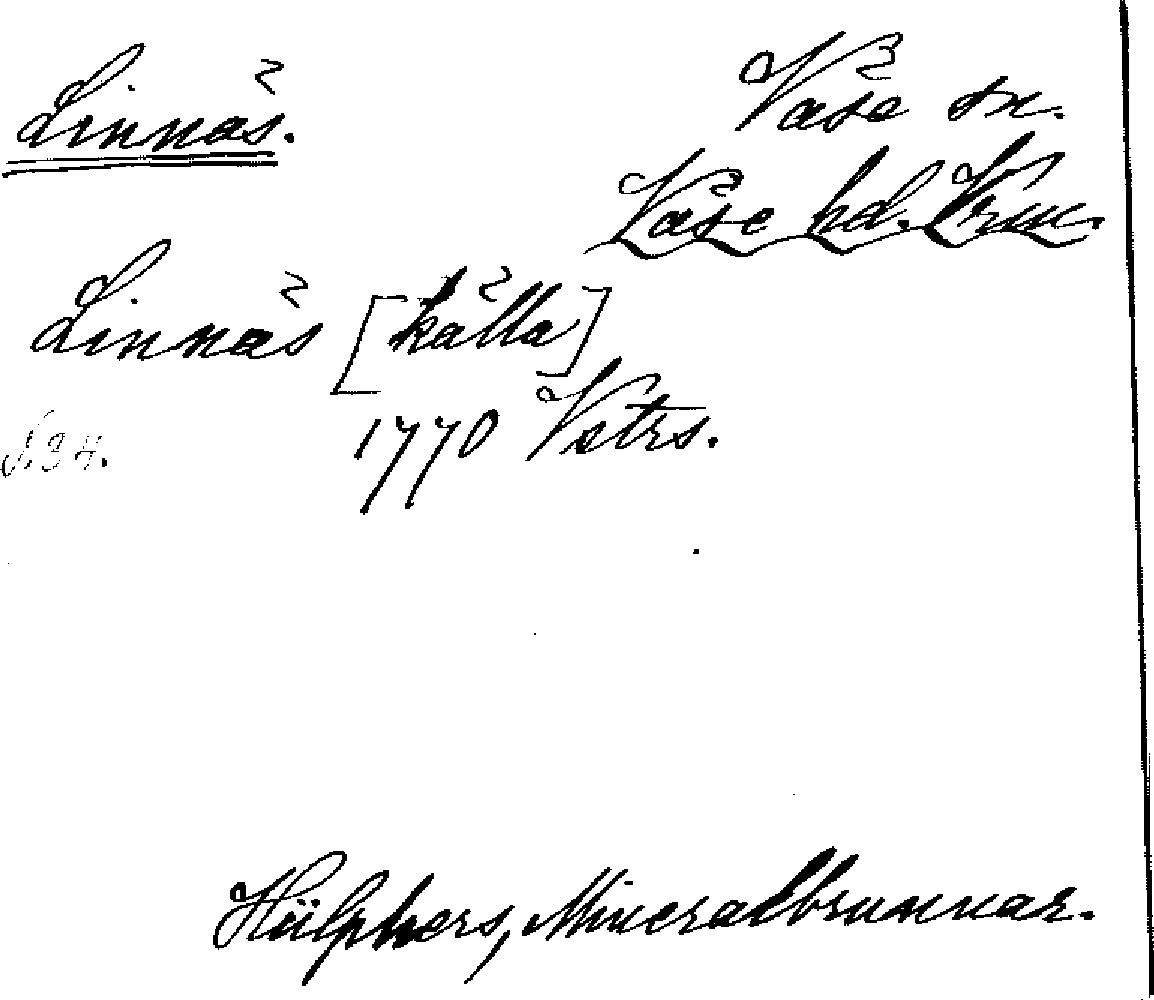 Linnäs.
Väse sn.
Väse hd. Vrm.
Linnäs [källa]
N34. 1770 Vstrs.
Hülphers, Mineralbrunnar.